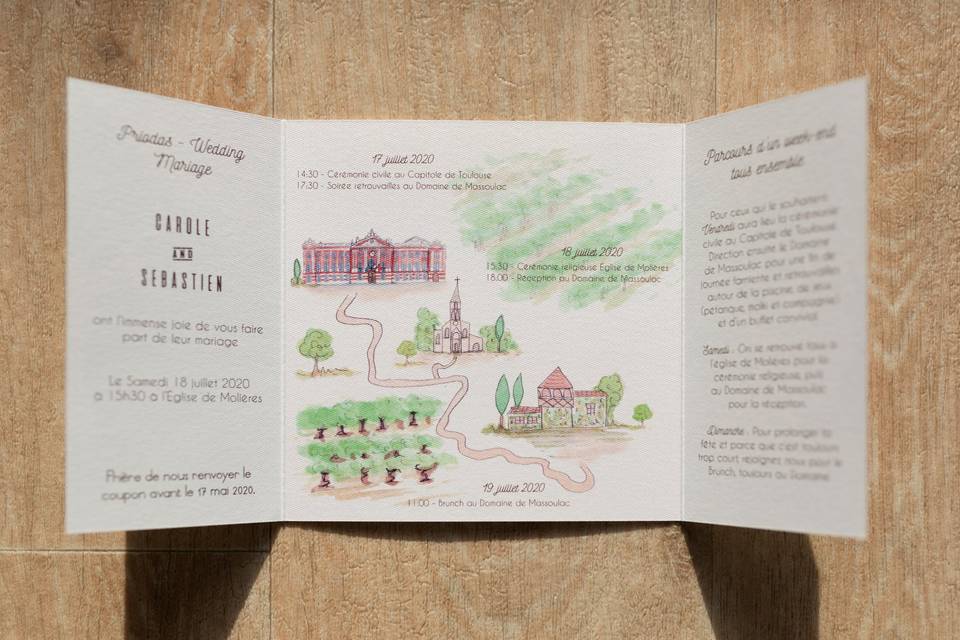 Priodas - Wedding
Mariage
CAROLE
AND
SEBASTIEN
ont l'immense joie de vous faire
part de leur mariage
Le Samedi 18 juillet 2020
à 15h30 à l'Eglise de Molières
Prière de nous renvoyer le
coupon avant le 17 mai 2020.
17 juillet 2020
14:30 - Cérémonie civile au Capitole de Toulouse
17:30 - Soirée retrouvailles au Domaine de Massoulac
18 juillet 2020
15:30 - Cérémonie religieuse Eglise de Molières
18:00 - Réception au Domaine de Massoulac
19 juillet 2020
11:00 - Brunch au Domaine de Massoulac
Parcours d'un week-end
tous ensemble
Pour ceux qui le souhaitent
Vendredi aura lieu la cérémonie
civile au Capitole de Toulouse.
Direction ensuite le Domaine
de Massoulac pour une fin de
journée farniente et retrouvailles
autour de la piscine, de jeux
(pétanque, molki et compagnie)
et d'un buffet convivial.
Samedi : On se retrouve tous à
l'église de Molières pour la
cérémonie religieuse, puis
au Domaine de Massoulac
pour la réception.
Dimanche : Pour prolonger la
fête et parce que c'est toujours
trop court, rejoignez nous pour le
Brunch, toujours au Domaine.